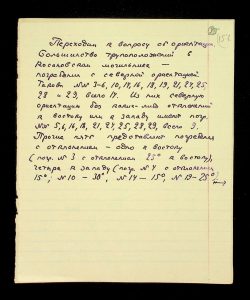 Переходим к вопросу об ориентации.
Большинство трупоположений в
могильника —
погребения с северной ориентацией
Таковы №№ 3-6, 10, 14, 16, 18, 19, 21, 24, 25,
28 и 29, всего 14. Из них северную
ориентацию без каких-либо отклонений
к востоку или к западу имеют погр.
№№ 5, 6, 16, 18, 21, 24, 25, 28, 29, всего 9.
Прочие пять представляют погребения
с отклонением – одно к востоку
(погр. № 3 с отклонением 25° к востоку),
четыре к западу (погр. № 4 с отклонением
15°, № 10 – 30°, № 14 – 15°, № 19 – 25°)